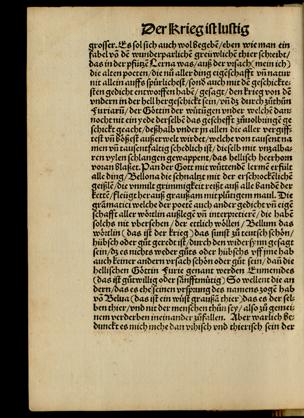 Der Krieg ist lustig
grosser. Es sol sich auch wol begebē/eben wie man ein
fabel vō dē wunderparlichē grewlichē thier schreibt/
das in der pfützē Lerna was/auß der vrsach (mein ich)
die alten poeten/die nū aller ding eigēschafft vn natur
mit allein auffs spürlichest/sond auch mit de geschickte-
sten gedicht entworffen habē/gesagt/den krieg von dē
vndern in der hell her geschickt sey/vn dz durch zůthůn
Furiarū/der Göttin der wütigen vnder welchē dan-
nocht nit ein yede derselbē das geschefft zůuolbringē ge
schickt geacht/deßhalb vnder jn allen die aller vergiff-
test vn bößest außerwelt wirdet/welche von tausent na
men vn tausentfaltig schedlich ist/die selb mit vnzalba-
ren vylen schlangen gewappent/das hellisch heerhorn
voran blaßet. Pan der Got mit wüttendē lermē erfült
alle ding/Bellona die schnaltzt mit der erschrockēlichē
geißlē/die vnmilt grimmigkeit reißt auß alle bandē der
kettē/fleügt herauß grausam mit plůtigem maul. Die
gramatici welche der poetē auch ander gedicht vn eigē
schafft aller wörtlin außlegē vn interpretierē/die habē
solchs nit vbersehen/der ertlich wöllen/Bellum das
wörtlin (das ist der krieg) das sunst zů teutsch schön/
hübsch oder gůt geredt ist/durch den widersynn gesagt
sein/dz es nichts weder gůts oder hübschs vff jme hab
auch keiner andern vrsach schön oder gůt sein/dan die
hellischen Göttin Furie genant werden Eumenides
(das ist gůtwillig oder sänfftmütig) So wellent die an
dern/das es ehe seinen vrsprung des namens zogē hab
vō Belua (das ist ein wüst graußā thier) das es der sel-
ben thier/vnd nit der menschen thůn sey/also zů gemei-
nem verderben meinander zůfallen. Aber warlich be-
dunckt es mich mehe dan vihisch vnd thierisch sein der